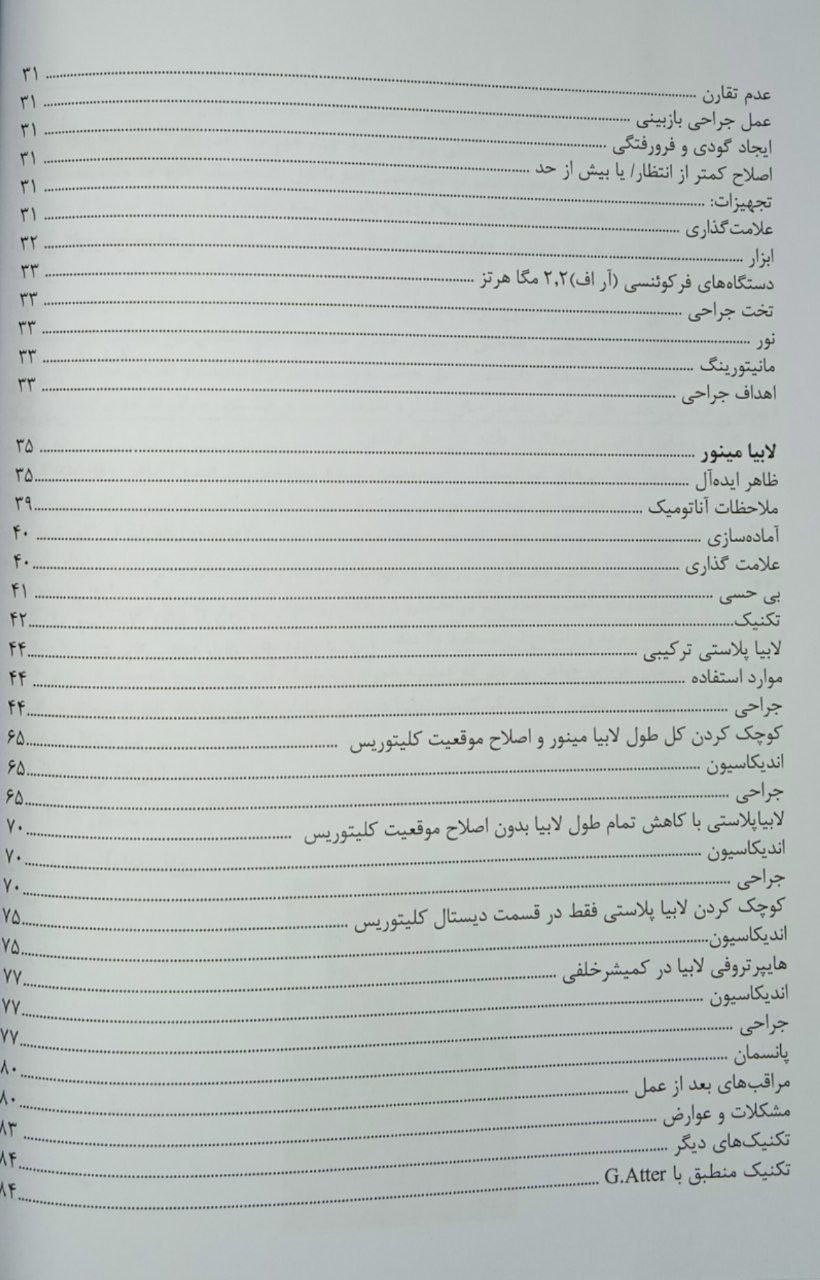 عدم تقارن ........ ۳۱
عمل جراحی بازبینی ........ ۳۱
ایجاد گودی و فرورفتگی ........ ۳۱
اصلاح کمتر از انتظار/ یا بیش از حد ........ ۳۱
تجهیزات: ........ ۳۱
علامت‌گذاری ........ ۳۱
ابزار ........ ۳۲
دستگاه‌های فرکوئنسی (آر اف)۲,۲ مگا هرتز ........ ۳۳
تخت جراحی ........ ۳۳
نور ........ ۳۳
مانیتورینگ ........ ۳۳
اهداف جراحی ........ ۳۳
لابیا مینور ........ ۳۵
ظاهر ایده‌آل ........ ۳۵
ملاحظات آناتومیک ........ ۳۹
آماده‌سازی ........ ۴۰
علامت گذاری ........ ۴۰
بی حسی ........ ۴۱
تکنیک ........ ۴۲
لابیا پلاستی ترکیبی ........ ۴۴
موارد استفاده ........ ۴۴
جراحی ........ ۴۴
کوچک کردن کل طول لابیا مینور و اصلاح موقعیت کلیتوریس ........ ۶۵
اندیکاسیون ........ ۶۵
جراحی ........ ۶۵
لابیاپلاستی با کاهش تمام طول لابیا بدون اصلاح موقعیت کلیتوریس ........ ۷۰
اندیکاسیون ........ ۷۰
جراحی ........ ۷۰
کوچک کردن لابیا پلاستی فقط در قسمت دیستال کلیتوریس ........ ۷۵
اندیکاسیون ........ ۷۵
هایپرتروفی لابیا در کمیشرخلفی ........ ۷۷
اندیکاسیون ........ ۷۷
جراحی ........ ۷۷
پانسمان ........ ۸۰
مراقب‌های بعد از عمل ........ ۸۰
مشکلات و عوارض ........ ۸۳
تکنیک‌های دیگر ........ ۸۴
تکنیک منطبق با G.Atter ........ ۸۴